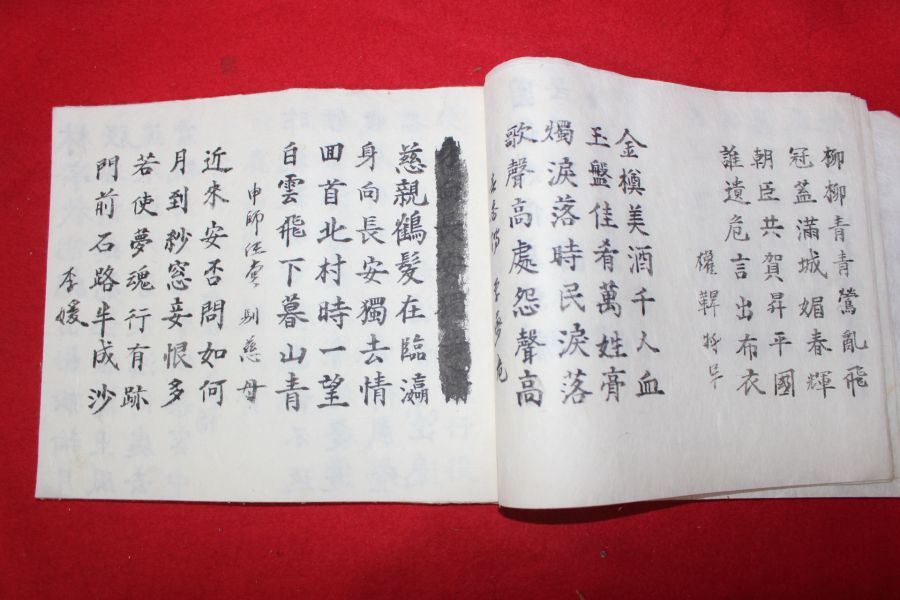 柳柳青青鶯亂飛
冠盖滿城媚春輝
朝臣共賀昇平國
誰遺危言出布衣
權韠
金樽美酒千人血
玉盤佳肴萬姓膏
燭淚落時民淚落
歌聲高處怨聲高
李夢
慈親鶴髮在臨瀛
身向長安獨去情
回首北村時一望
白雲飛下暮山青
申師任堂 別慈母
近來安否問如何
月到紗窓妾恨多
若使夢魂行有跡
門前石路半成沙
李媛